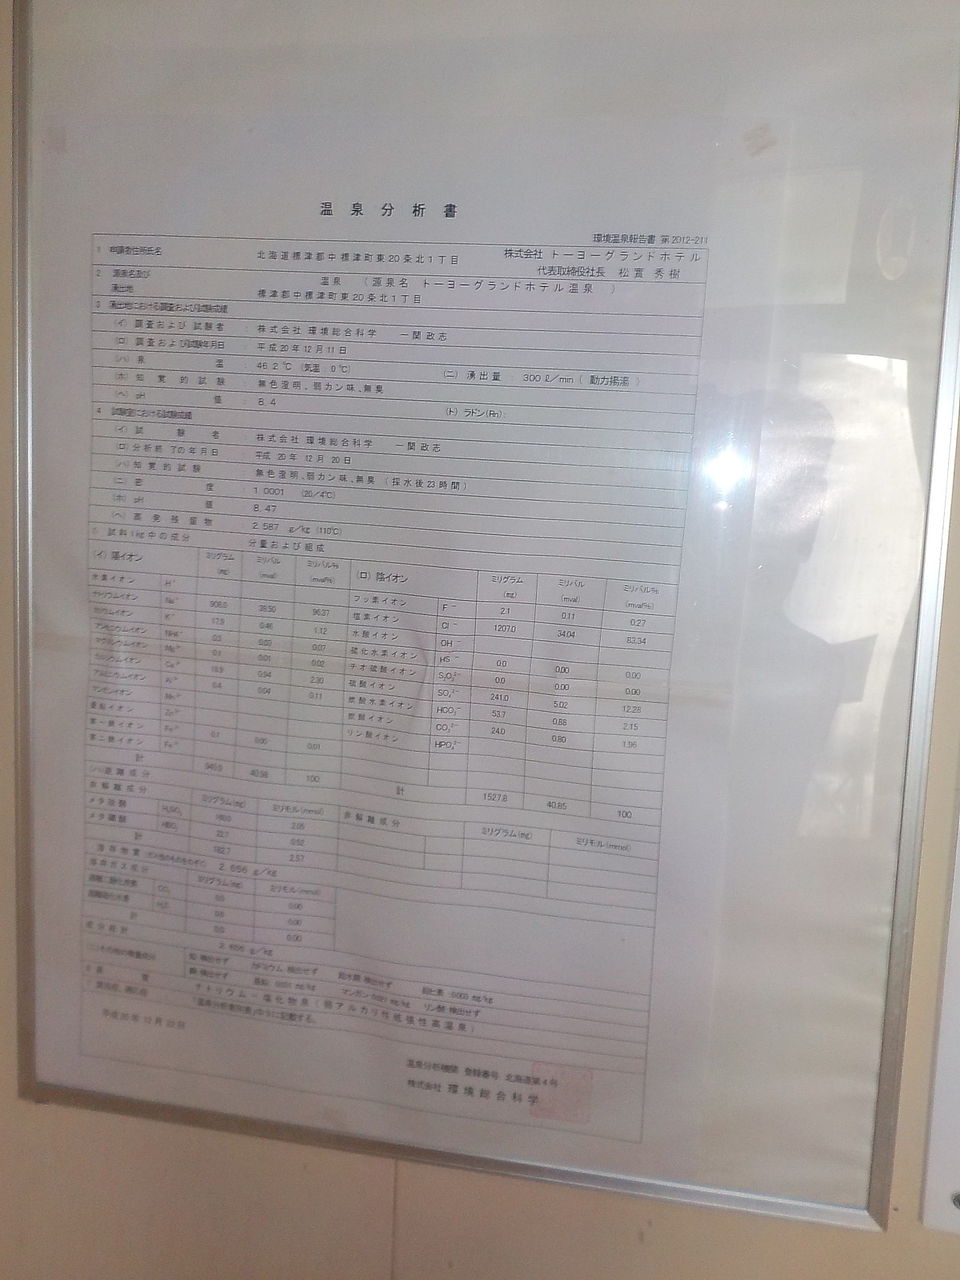 温泉分析書
環境温泉報告書 第2012-211
1 申請者住所氏名 北海道標津郡中標津町東20条北1丁目 株式会社 トーヨーグランドホテル
代表取締役社長 松實 秀樹
2 源泉名及び 温泉 (源泉名 トーヨーグランドホテル温泉)
湧出地 標津郡中標津町東20条北1丁目
3 湧出地における調査および試験成績
(イ) 調査および試験者 : 株式会社 環境総合科学 一関政志
(ロ) 調査および試験年月日 : 平成20年12月11日
(ハ) 泉温 : 46.2℃ (気温 0℃) (ニ) 湧出量 : 300ℓ/min (動力揚湯)
(ホ) 知覚的試験 : 無色澄明、弱カン味、無臭
(ヘ) pH値 : 8.4 (ト) ラドン(Rn):
4 試験室における試験成績
(イ) 試験者 : 株式会社 環境総合科学 一関政志
(ロ) 分析終了の年月日 : 平成20年12月20日
(ハ) 知覚的試験 : 無色澄明、弱カン味、無臭 (採水後23時間)
(ニ) 密度 : 1.0001 (20/4℃)
(ホ) pH値 : 8.47
(ヘ) 蒸発残留物 : 2.587 g/kg (110℃)
5 試料1kg中の成分 分量および組成
(イ) 陽イオン ミリグラム(mg) ミリバル(mval) ミリバル%(mval%)
水素イオン H⁺
ナトリウムイオン Na⁺ 908.0 39.50 96.37
カリウムイオン K⁺ 17.9 0.46 1.12
アンモニウムイオン NH4⁺ 0.3 0.02 0.07
マグネシウムイオン Mg²⁺ 0.1 0.01 0.02
カルシウムイオン Ca²⁺ 18.9 0.94 2.30
アルミニウムイオン Al³⁺ 0.4 0.04 0.11
マンガンイオン Mn²⁺
亜鉛イオン Zn²⁺
第一鉄イオン Fe²⁺ 0.1 0.00 0.01
第二鉄イオン Fe³⁺
計 945.9 40.98 100
(ロ) 陰イオン ミリグラム(mg) ミリバル(mval) ミリバル%(mval%)
フッ素イオン F⁻ 2.1 0.11 0.27
塩素イオン Cl⁻ 1207.0 34.04 83.34
水酸イオン OH⁻
硫化水素イオン HS⁻ 0.0 0.00 0.00
チオ硫酸イオン S₂O₃²⁻ 0.0 0.00 0.00
硫酸イオン SO₄²⁻ 241.0 5.02 12.28
炭酸水素イオン HCO₃⁻ 53.7 0.88 2.15
炭酸イオン CO₃²⁻ 24.0 0.80 1.96
リン酸イオン HPO₄²⁻
計 1527.8 40.85 100
(ハ) 遊離成分
非解離成分 ミリグラム(mg) ミリモル(mmol) 非解離成分 ミリグラム(mg) ミリモル(mmol)
メタ珪酸 H₂SiO₃ 160.0 2.05
メタ硼酸 HBO₂ 22.7 0.52
計 182.7 2.57
溶存物質 (ガス性のものをのぞく) 2.656 g/kg
溶存ガス成分 ミリグラム(mg) ミリモル(mmol)
遊離二酸化炭素 CO₂ 0.0 0.00
遊離硫化水素 H₂S 0.0 0.00
計 0.0 0.00
成分総計 2.656 g/kg
(ニ) その他の微量成分 鉛 検出せず カドミウム 検出せず 総水銀 検出せず 総ヒ素 0.003 mg/kg
銅 検出せず 亜鉛 mg/kg マンガン mg/kg リン酸 検出せず
6 泉質 ナトリウム-塩化物泉 (弱アルカリ性低張性高温泉)
「温泉分析書別表」中5に記載する。
平成20年12月22日
温泉分析機関 登録番号 北海道第4号
株式会社 環境総合科学